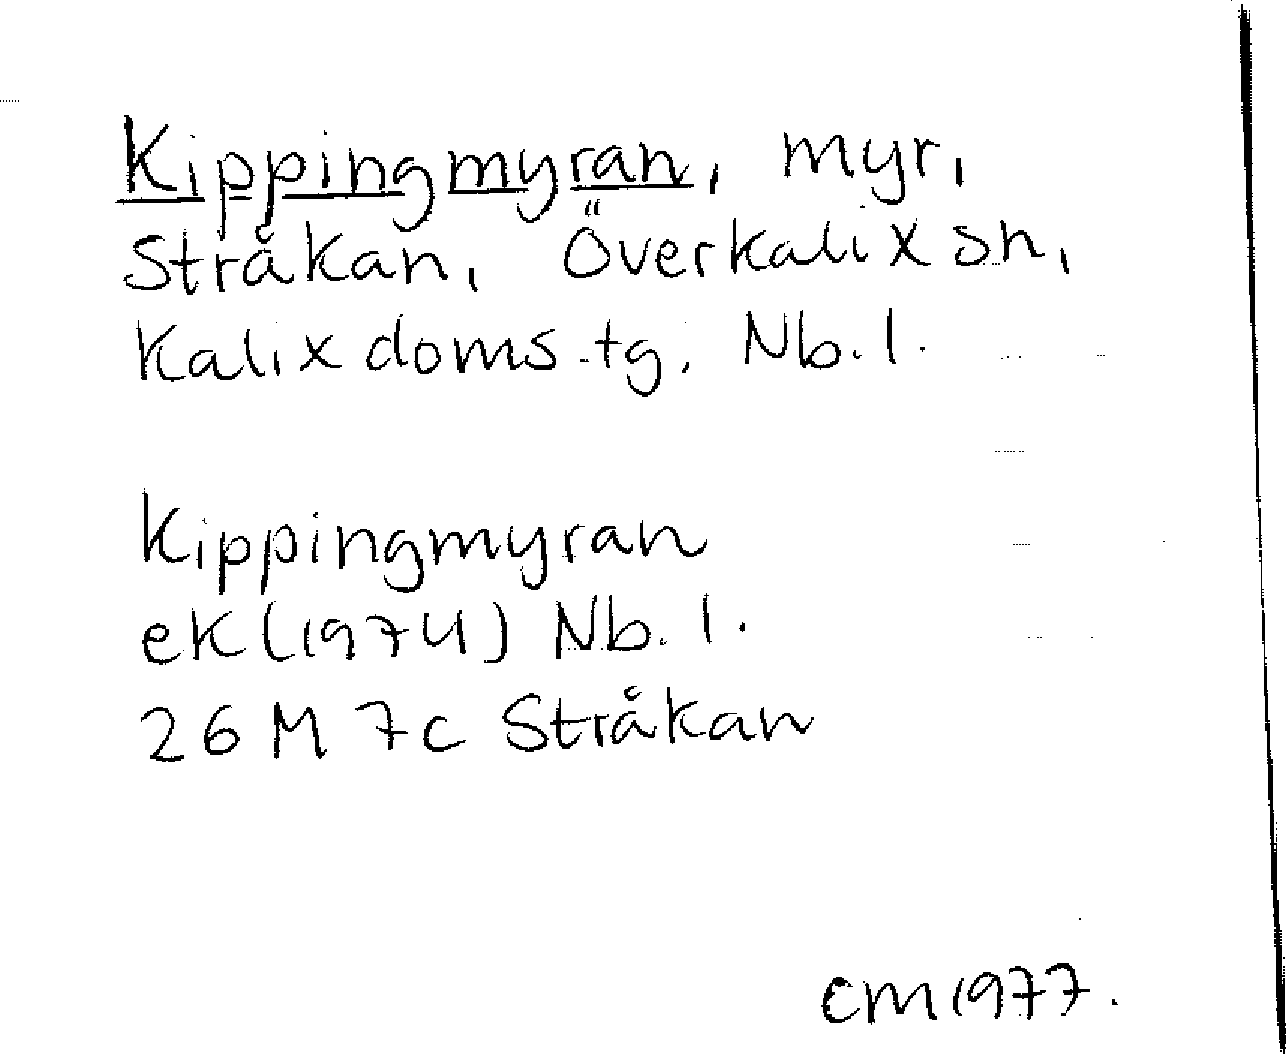 Kippingmyran, myr,
Stråkan, Överkalix sn,
Kalix doms.tg, Nb. l.
Kippingmyran
ek (1974) Nb. l.
26 M 7c Stråkan
CM 1977.